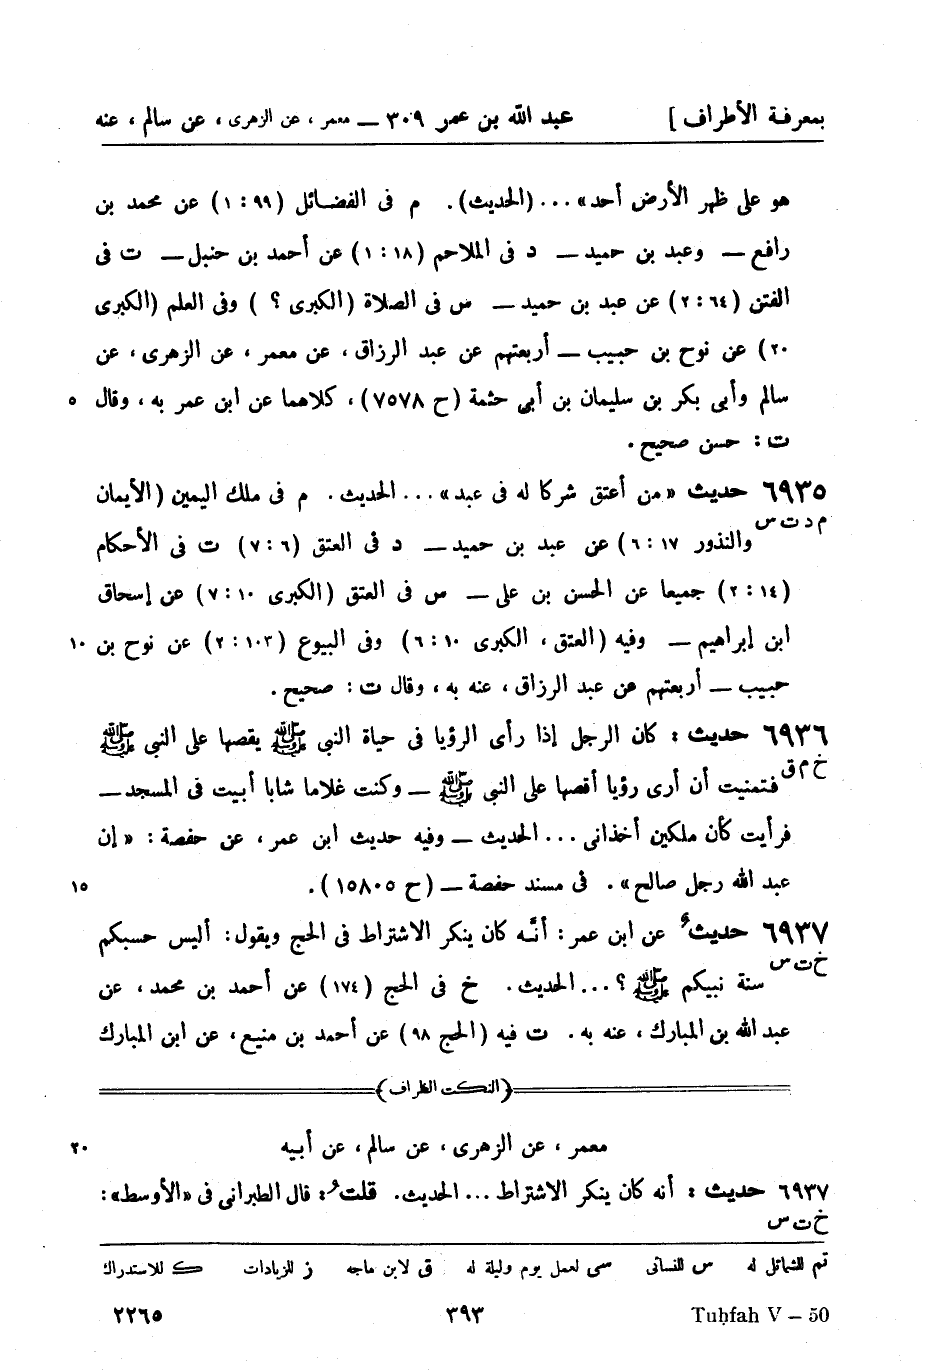 بمعرفة الأطراف ] عبد الله بن عمر ٣٠٩ ــ معمر ، عن الزهرى ، عن سالم ، عنه
هو على ظهر الأرض أحد» ... (الحديث). م فى الفضائل (٩٩ : ١) عن محمد بن
رافع ــ وعبد بن حميد ــ د فى الملاحم (١٨ : ١) عن أحمد بن حنبل ــ ت فى
الفتن (٦٤ : ٢) عن عبد بن حميد ــ س فى الصلاة (الكبرى ؟ ) وفى العلم (الكبرى
٢٠) عن نوح بن حبيب ــ أربعتهم عن عبد الرزاق ، عن معمر ، عن الزهرى ، عن
سالم وأبى بكر بن سليمان بن أبى حثمة (ح ٧٥٧٨) ، كلاهما عن ابن عمر به ، وقال ٥
ت : حسن صحيح .
٦٩٣٥ حديث «من أعتق شركا له فى عبد» ... الحديث . م فى ملك اليمين (الأيمان
م د ت س والنذور ١٧ : ٦) عن عبد بن حميد ــ د فى العتق (٦ : ٧) ت فى الأحكام
(١٤ : ٢) جميعا عن الحسن بن على ــ س فى العتق (الكبرى ١٠ : ٧) عن إسحاق
ابن إبراهيم ــ وفيه (العتق ، الكبرى ١٠ : ٦) وفى البيوع (١٠٣ : ٢) عن نوح بن ١٠
حبيب ــ أربعتهم عن عبد الرزاق ، عنه به ، وقال ت : صحيح .
٦٩٣٦ حديث : كان الرجل إذا رأى الرؤيا فى حياة النبى ﷺ يقصها على النبى ﷺ
خ م ق فتمنيت أن أرى رؤيا أقصها على النبى ﷺ ــ وكنت غلاما شابا أبيت فى المسجد ــ
فرأيت كأن ملكين أخذانى ... الحديث ــ وفيه حديث ابن عمر ، عن حفصة : «إن
عبد الله رجل صالح» . فى مسند حفصة ــ (ح ١٥٨٠٥) . ١٥
٦٩٣٧ حديثٌ عن ابن عمر : أنّه كان ينكر الاشتراط فى الحج ويقول : أليس حسبكم
خ ت س سنة نبيكم ﷺ ؟ ... الحديث . خ فى الحج (١٧٤) عن أحمد بن محمد ، عن
عبد الله بن المبارك ، عنه به . ت فيه (الحج ٩٨) عن أحمد بن منيع ، عن ابن المبارك
(النكت الظراف)
معمر ، عن الزهرى ، عن سالم ، عن أبيه ٢٠
٦٩٣٧ حديث : أنه كان ينكر الاشتراط ... الحديث . قلتُ : قال الطبرانى فى «الأوسط» :
خ ت س
تم للشمائل له س للنسائى سى لعمل يوم وليلة له ق لابن ماجه ز للزيادات ك للاستدراك
Tuḥfah V – 50 ٣٩٣ ٢٢٦٥